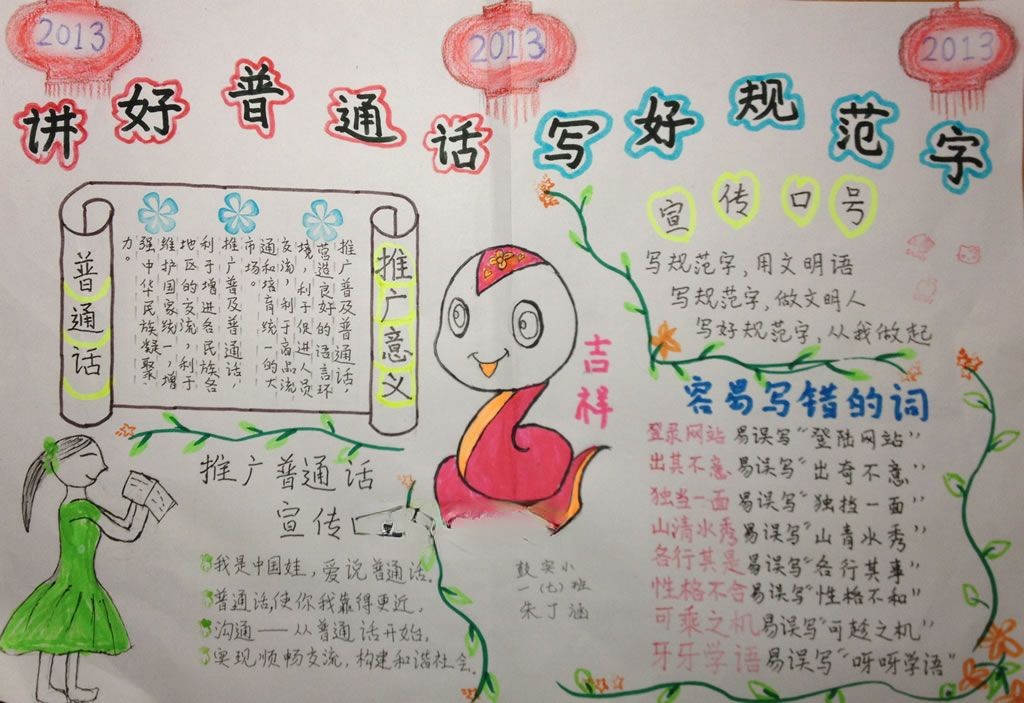 2013
2013
2013
讲好普通话 写好规范字
普通话
推广意义
推广普及普通话,
营造良好的语言环
境,利于促进人员
交流,利于商品流
通和培育统一的大
市场。
推广普及普通话,
利于增进各民族各
地区的交流,利于
维护国家统一,增
强中华民族凝聚
力。
推广普通话
宣传
我是中国娃,爱说普通话.
普通话,使你我靠得更近,
沟通——从普通话开始,
实现顺畅交流,构建和谐社会.
吉祥
鼓实小
一(七)班
朱丁涵
宣传口号
写规范字,用文明语
写规范字,做文明人
写好规范字,从我做起
容易写错的词
登录网站 易误写“登陆网站”
出其不意 易误写“出奇不意”
独当一面 易误写“独挡一面”
山清水秀 易误写“山青水秀”
各行其是 易误写“各行其事”
性格不合 易误写“性格不和”
可乘之机 易误写“可趁之机”
牙牙学语 易误写“呀呀学语”